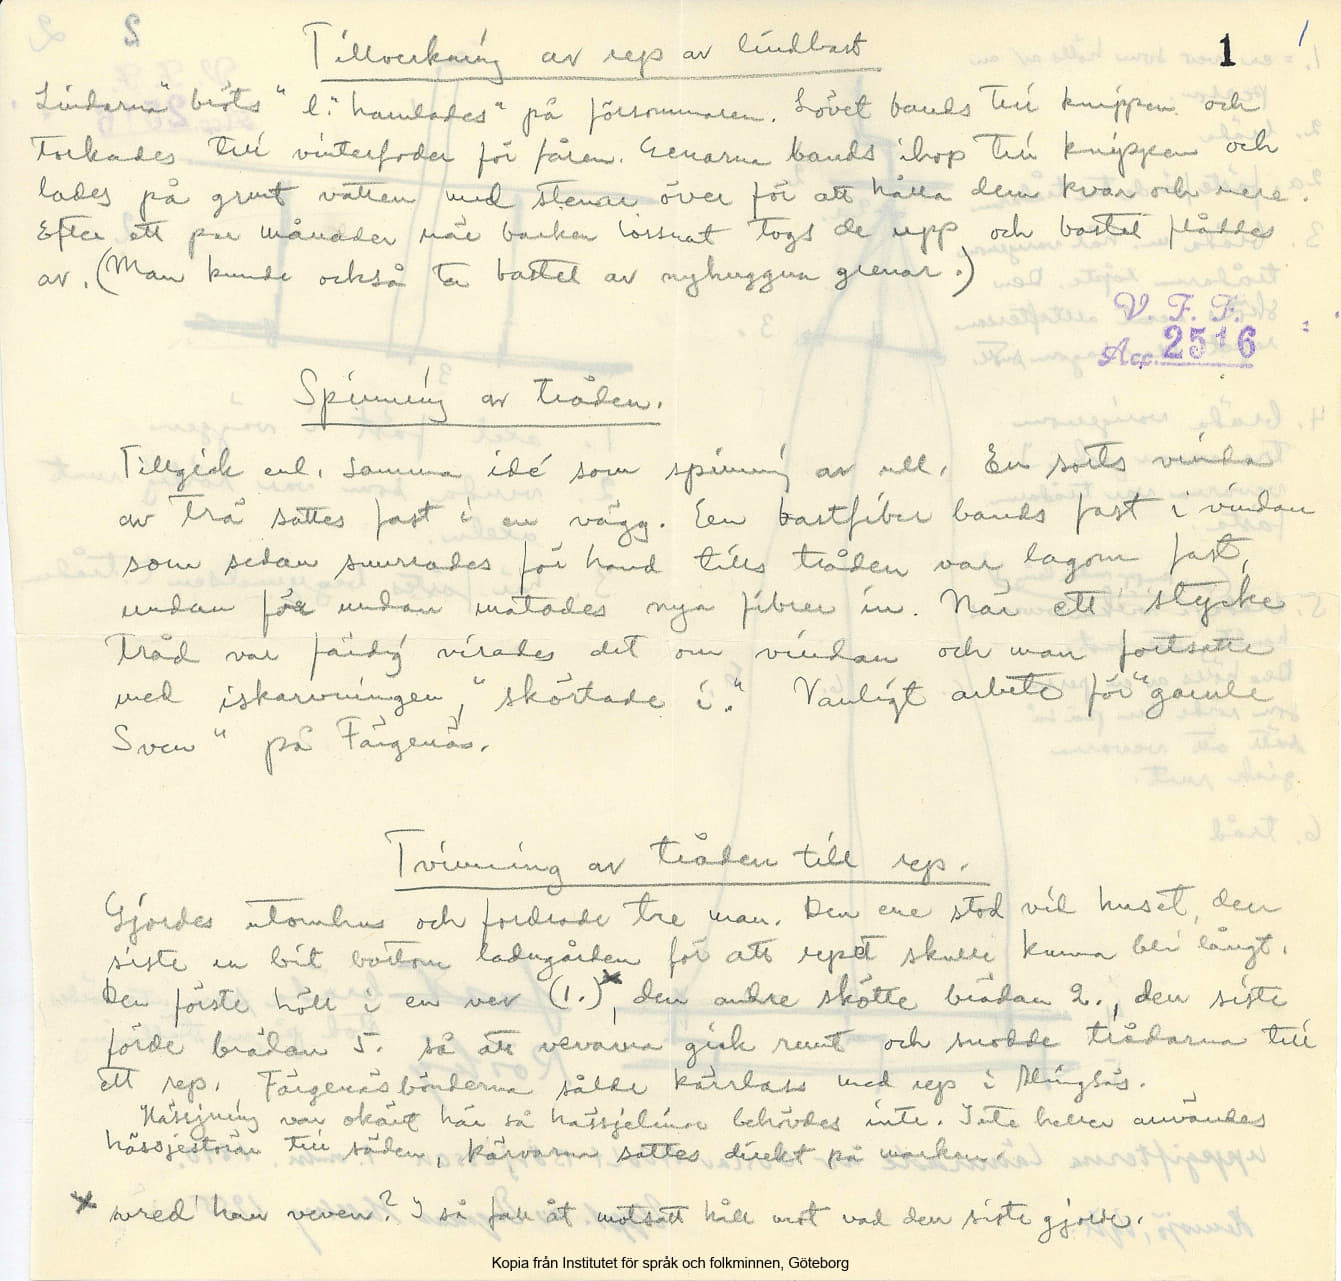 Tillverkning av rep av lindbast
1
Lindarna "bröts" l. "hamlades" på försommaren. Lövet bands till knippen och
torkades till vinterfoder för fåren. Grenarna bands ihop till knippen och
lades på grunt vatten med stenar över för att hålla dem kvar och nere.
Efter ett par månader när barken lossnat togs de upp och bastet flåddes
av. (Man kunde också ta bastet av nyhuggna grenar.)
V. F. F.
Acc. 2516
Spinning av tråden.
Tillgick enl. samma idé som spinning av ull. En sorts vinda
av trä sattes fast i en vägg. En bastfiber bands fast i vindan
som sedan snurrades för hand tills tråden var lagom fast,
undan för undan matades nya fibrer in. När ett stycke
tråd var färdig virades det om vindan och man fortsatte
med iskarvningen, "skörtade i." Vanligt arbete för "gamle
Sven" på Färgenäs.
Tvinning av tråden till rep.
Gjordes utomhus och fordrade tre man. Den ene stod vid huset, den
siste en bit bortom ladugården för att repet skulle kunna bli långt.
Den förste höll i en vev (1.)x, den andre skötte brädan 2., den siste
förde brädan 5. så att vevarna gick runt och snodde trådarna till
ett rep. Färgenäsbönderna sålde kärrlass med rep i Alingsås.
Hässjning var okänt här så hässjelinor behövdes inte. Inte heller användes
hässjestörar till säden, kärvarna sattes direkt på marken.
x vred han veven? I så fall åt motsatt håll mot vad den siste gjorde.
Kopia från Institutet för språk och folkminnen, Göteborg